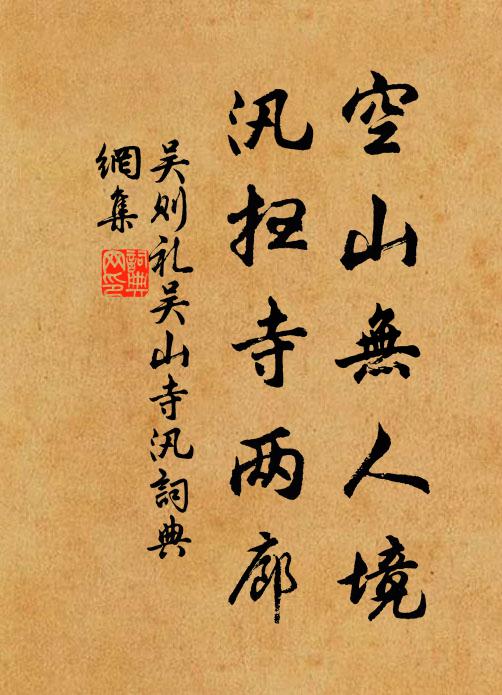 空山無人境
汛扫寺两廊
吴则礼吴山寺汛詞典
網集
詞典
网印